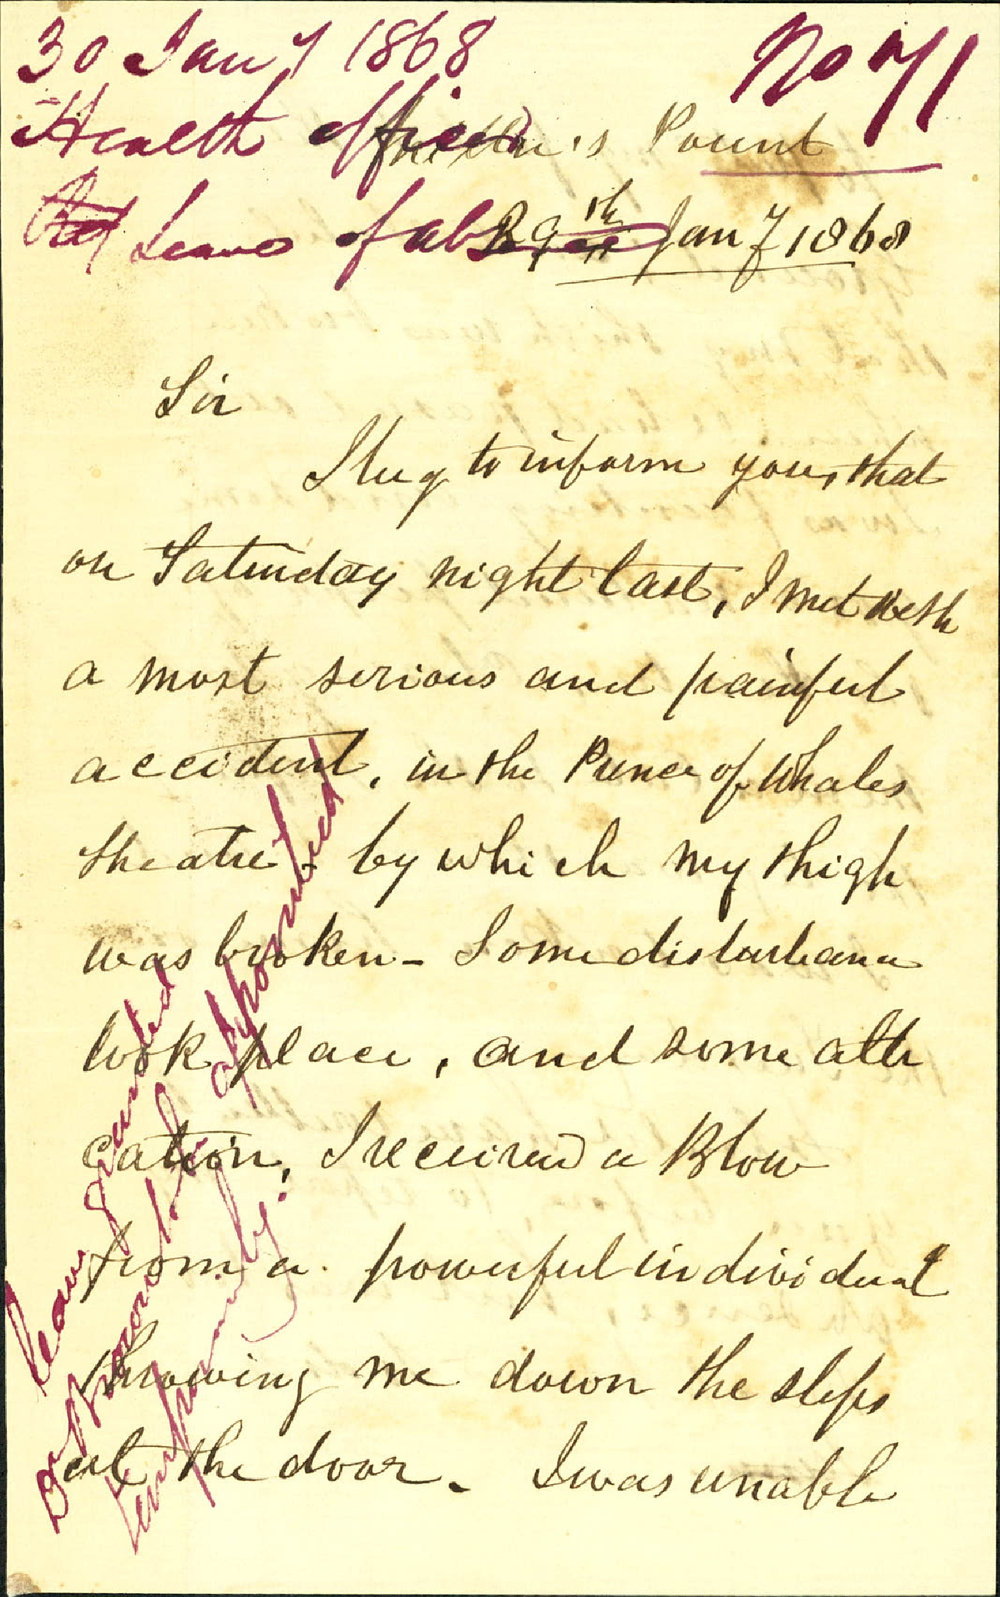 30 Jany 1868
No 71
Health officer
's Point
Leave of abs
29th Jany 1868
Sir
I beg to inform you, that
on Saturday night last, I met with
a most serious and painful
accident, in the Prince of Whales
theatre - by which my thigh
was broken - Some disturbance
took place, and some alte
cation, I received a Blow
from a powerful individual
throwing me down the steps
at the door. I was unable
leave granted
Dr Browne to be appointed
temporarily.